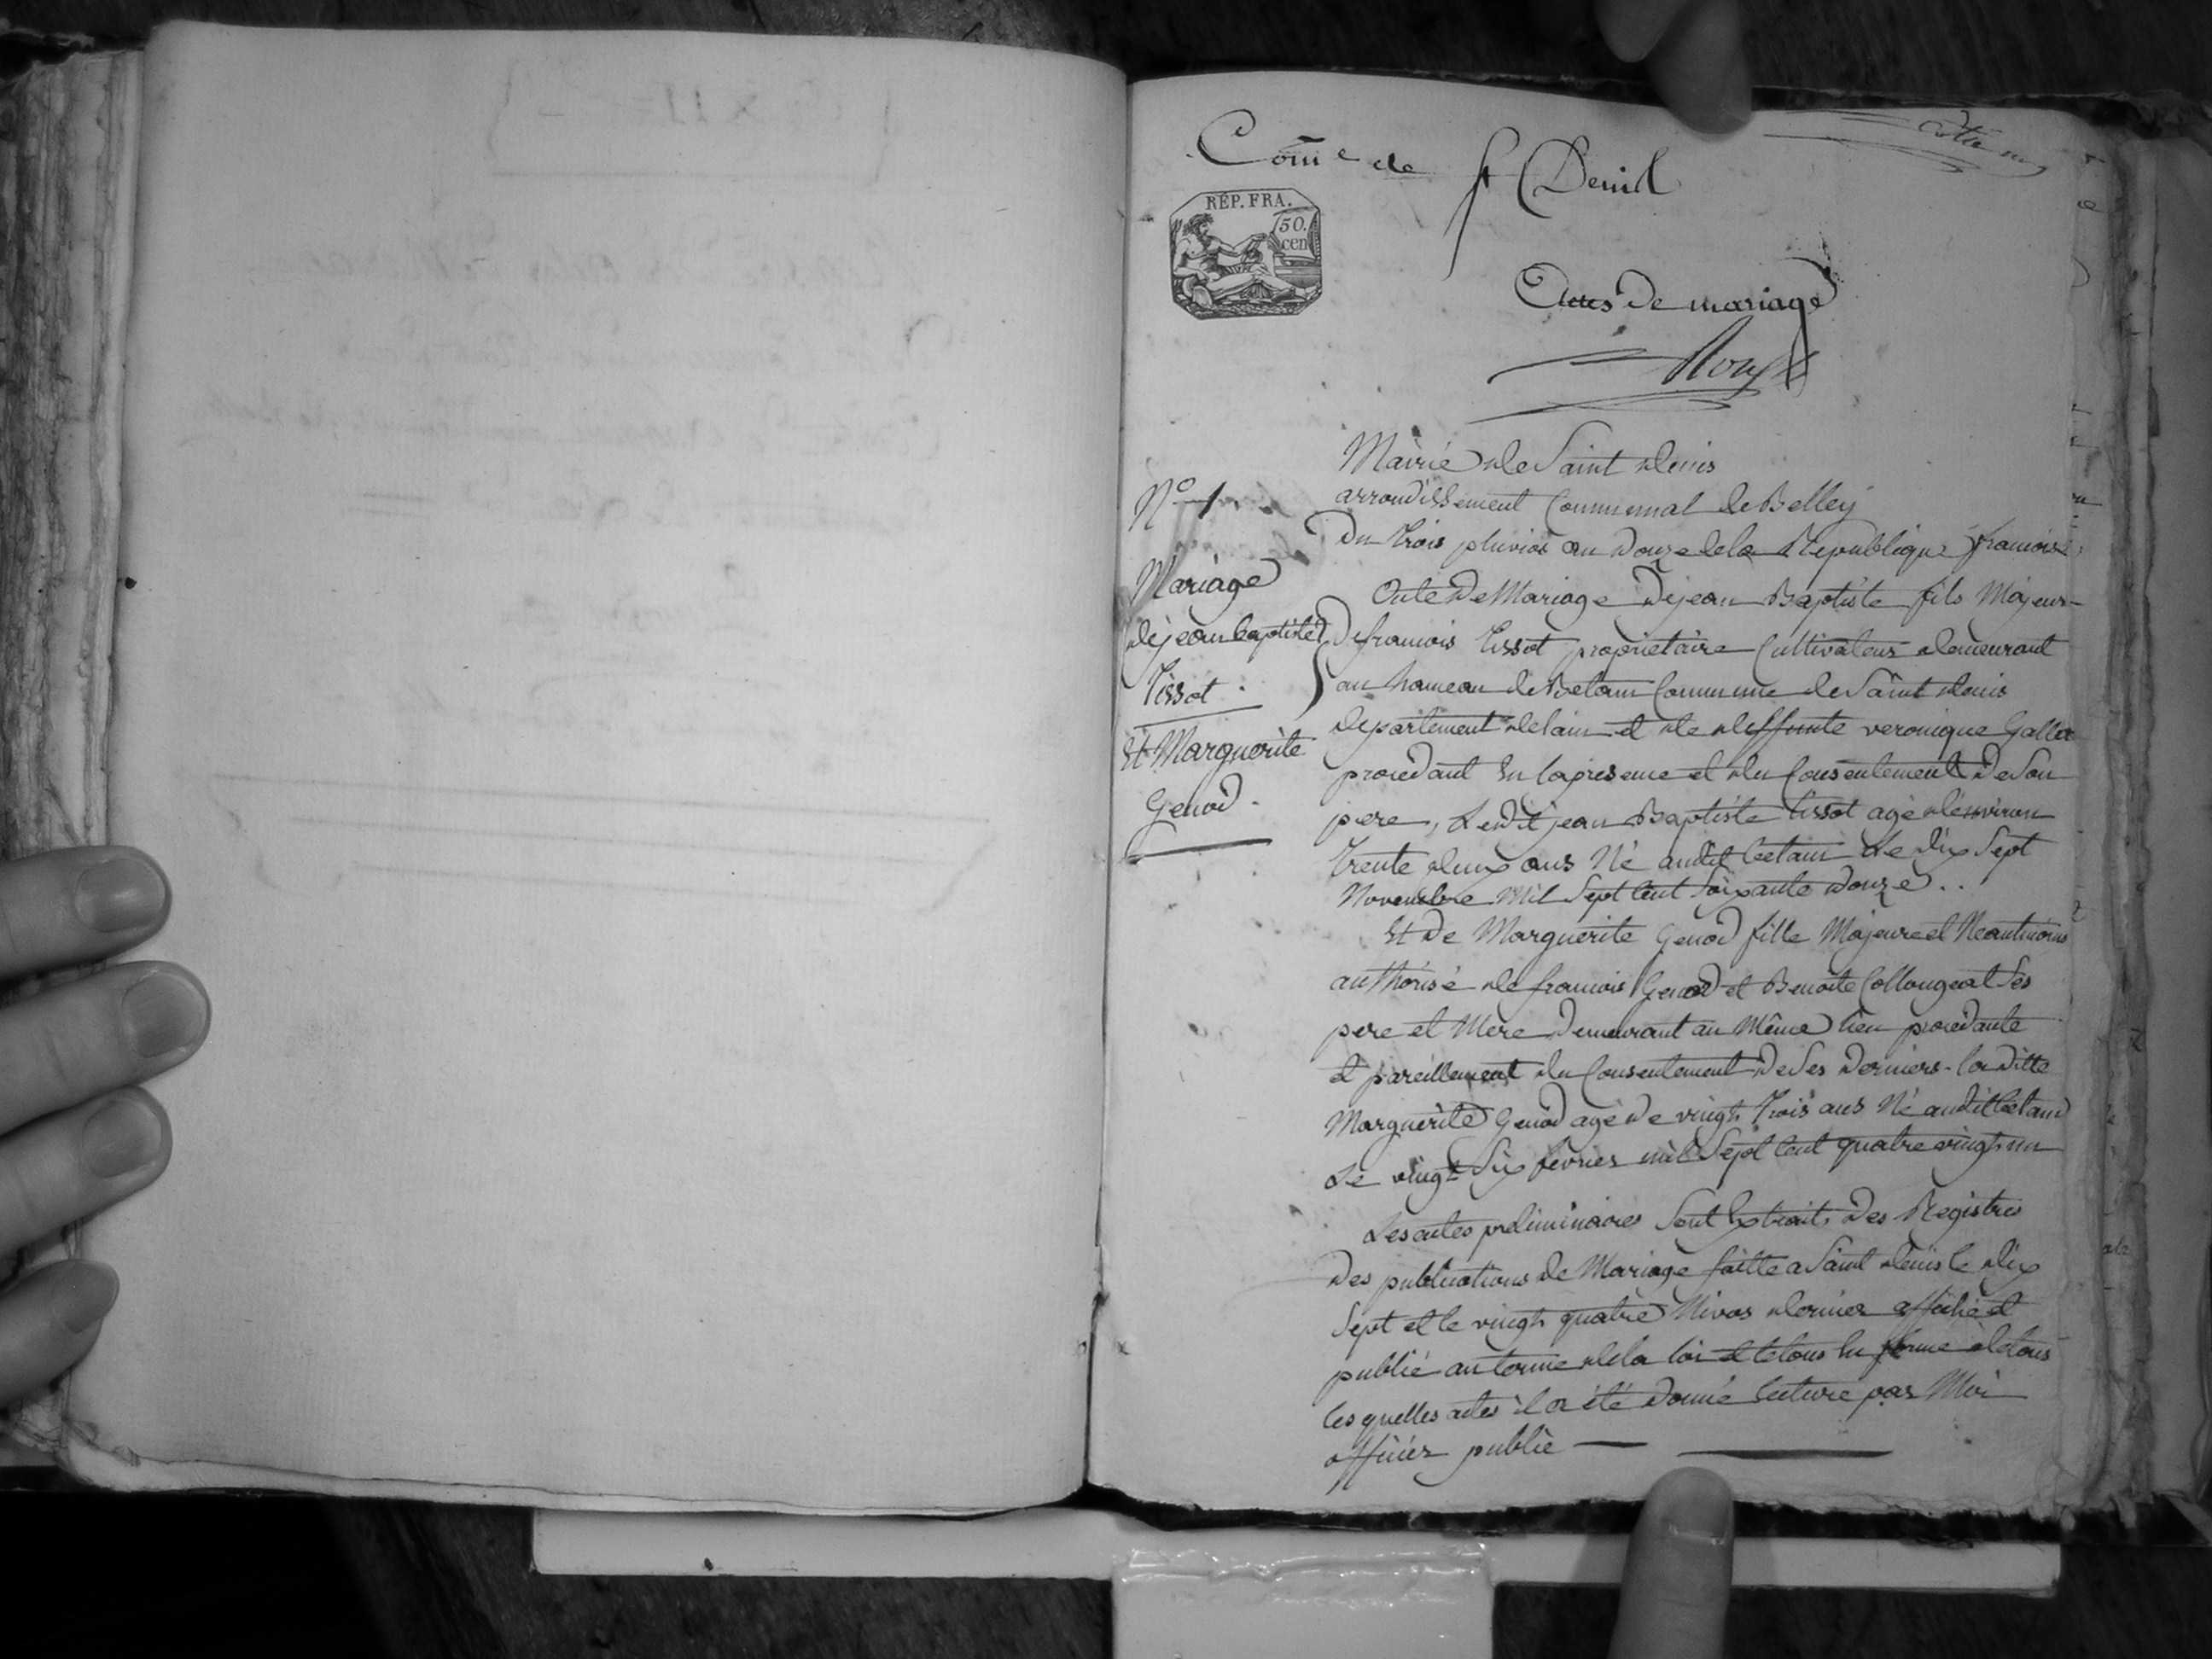 Com.e de St Denis
RÉP. FRA.
50.
cen
Actes de mariage
Roux
N° 1
Mariage
de jean baptiste
Tissot
Et Marguerite
Genod
Mairie de Saint denis
arrondissement Communal de Belley
Du trois pluvios an douze de la Republique francoise
Acte de Mariage de jean Baptiste fils Majeur
de francois Tissot proprietaire Cultivateur demeurant
au hameau de Betan Commune de Saint denis
departement de lain et de deffunte veronique Gallet
procedant En la presence et du Consentement de Son
pere, Ledit jean Baptiste tissot agé d'environ
trente deux ans Né audit betan Le dix Sept
Novembre Mil Sept Cent Soixante douze..
Et de Marguerite Genod fille Majeure et Neantmoins
authorisé de francois Genod et Benoite Collongeat Ses
pere et Mere demeurant au Même lieu procedante
et pareillement du Consentement de Ses derniers. la ditte
Marguerite Genod agé de vingt trois ans Né audit betan
Le vingt Six fevrier mil Sept Cent quatre vingt un
Les actes preliminaires Sont Extraits des Registres
des publications de Mariage faitte a Saint denis le dix
Sept et le vingt quatre Nivos dernier affiché et
publié au terme de la loi et le tous En forme de tous
les quelles actes il a été donné lecture par Moi
officier public